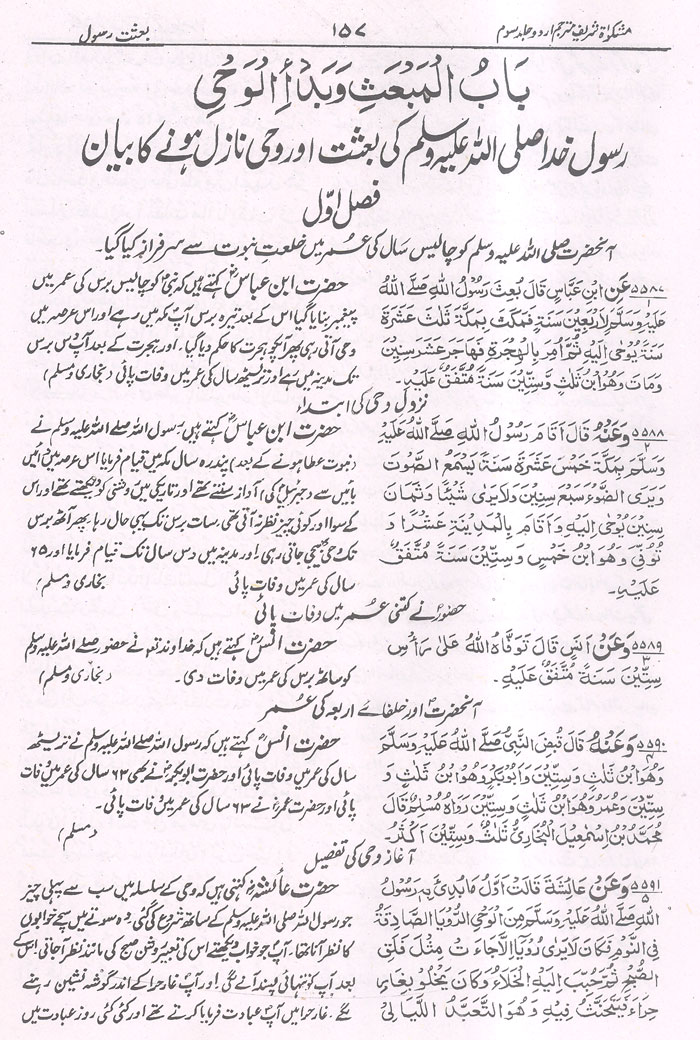 مشکوٰۃ شریف مترجم اردو جلد سوم
۱۵۷
بعثت رسول
بَابُ الْمَبْعَثِ وَبَدْأِ الْوَحْیِ
رسول خدا صلی اللہ علیہ وسلم کی بعثت اور وحی نازل ہونے کا بیان
فصل اوّل
آنحضرت صلی اللہ علیہ وسلم کو چالیس سال کی عمر میں خلعت نبوت سے سرفراز کیا گیا۔
۵۵۸۷ عَنِ ابْنِ عَبَّاسٍ قَالَ بُعِثَ رَسُوْلُ اللّٰهِ صَلَّے اللّٰهُ
۱
عَلَیْہِ وَسَلَّمَ لِاَرْبَعِیْنَ سَنَةٍ فَمَكَثَ بِمَكَّةَ ثَلٰثَ عَشَرَةَ
سَنَةً یُوْحٰی اِلَیْهِ ثُمَّ اُمِرَ بِالْهِجْرَةِ فَهَاجَرَ عَشَرَ سِنِیْنَ
وَمَاتَ وَهُوَ ابْنُ ثَلٰثٍ وَّسِتِّیْنَ سَنَةً مُتَّفَقٌ عَلَیْہِ۔
حضرت ابن عباسؓ کہتے ہیں کہ نبیؐ کو چالیس برس کی عمر میں
پیغمبر بنایا گیا اس کے بعد تیرہ برس آپؐ مکہ میں رہے اور اس عرصہ میں
وحی آتی رہی پھر آپکو ہجرت کا حکم دیا گیا۔ اور ہجرت کے بعد آپؐ دس برس
تک مدینہ میں رہے اور تریسٹھ سال کی عمر میں وفات پائی (بخاری و مسلم)
نزولِ وحی کی ابتداء
۵۵۸۸ وَعَنْهُ قَالَ اَقَامَ رَسُوْلُ اللّٰهِ صَلَّے اللّٰهُ عَلَیْہِ
۲
وَسَلَّمَ بِمَكَّةَ خَمْسَ عَشَرَةَ سَنَةً یَسْمَعُ الصَّوْتَ
وَیَرَی الضَّوْءَ سَبْعَ سِنِیْنَ وَلَا یَرٰی شَیْئًا وَّثَمَانَ
سِنِیْنَ یُوْحٰی اِلَیْهِ وَاَقَامَ بِالْمَدِیْنَةِ عَشْرًا وَ
تُوُفِّیَ وَهُوَ ابْنُ خَمْسٍ وَسِتِّیْنَ سَنَةً مُتَّفَقٌ
عَلَیْهِ۔
حضرت ابن عباسؓ کہتے ہیں رسول اللہ صلے اللہ علیہ وسلم نے
(نبوت عطا ہونے کے بعد) پندرہ سال مکہ میں قیام فرمایا اس عرصہ میں دائیں
بائیں سے (جبریلؑ کی) آواز سنتے تھے اور تاریکی میں روشنی کو دیکھتے تھے اور اس
کے سوا اور کوئی چیز نظر نہ آتی تھی، سات برس تک یہی حال رہا، پھر آٹھ برس
تک وحی بھیجی جاتی رہی اور مدینہ میں دس سال تک قیام فرمایا اور ۶۵
سال کی عمر میں وفات پائی بخاری و مسلم)
حضورؐ نے کتنی عمر میں وفات پائی
۵۵۸۹ وَعَنْ اَنَسٍ قَالَ تَوَفَّاهُ اللّٰهُ عَلٰی رَاْسِ
۳
سِتِّیْنَ سَنَةً مُتَّفَقٌ عَلَیْهِ۔
حضرت انسؓ کہتے ہیں کہ خداوند تعالیٰ نے حضور صلے اللہ علیہ وسلم
کو ساٹھ برس کی عمر میں وفات دی۔ (بخاری و مسلم)
آنحضرتؐ اور خلفائے اربعہ کی عمر
۵۵۹۰ وَعَنْهُ قَالَ قُبِضَ النَّبِیُّ صَلَّے اللّٰهُ عَلَیْهِ وَسَلَّمَ
۴
وَهُوَ ابْنُ ثَلٰثٍ وَسِتِّیْنَ وَاَبُوْبَكْرٍ وَهُوَ ابْنُ ثَلٰثٍ وَ
سِتِّیْنَ وَعُمَرُ وَهُوَ ابْنُ ثَلٰثٍ وَسِتِّیْنَ رَوَاهُ مُسْلِمٌ قَالَ
مُحَمَّدُ بْنُ اِسْمٰعِیْلَ الْبُخَارِیُّ ثَلٰثٌ وَسِتِّیْنَ اَكْثَرُ۔
حضرت انسؓ کہتے ہیں کہ رسول اللہ صلے اللہ علیہ وسلم نے تریسٹھ
سال کی عمر میں وفات پائی اور حضرت ابوبکرؓ نے بھی ۶۳ سال کی عمر میں وفات
پائی اور حضرت عمرؓ نے ۶۳ سال کی عمر میں وفات پائی۔
(مسلم)
آغاز وحی کی تفصیل
۵۵۹۱ وَعَنْ عَائِشَةَ قَالَتْ اَوَّلُ مَا بُدِئَ بِهٖ رَسُوْلُ
۵
اللّٰهِ صَلَّے اللّٰهُ عَلَیْهِ وَسَلَّمَ مِنَ الْوَحْیِ الرُّؤْیَا الصَّادِقَةُ
فِی النَّوْمِ فَكَانَ لَا یَرٰی رُؤْیَا اِلَّا جَاءَتْ مِثْلَ فَلَقِ
الصُّبْحِ ثُمَّ حُبِّبَ اِلَیْهِ الْخَلَاءُ وَكَانَ یَخْلُوْ بِغَارِ
حِرَاءَ فَیَتَحَنَّثُ فِیْهِ وَهُوَ التَّعَبُّدُ اللَّیَالِیَ
حضرت عائشہؓ کہتی ہیں کہ وحی کے سلسلہ میں سب سے پہلی چیز
جو رسول اللہ صلی اللہ علیہ وسلم کے ساتھ شروع کی گئی، وہ سوتے میں سچے خوابوں
کا نظر آنا تھا۔ آپؐ جو خواب دیکھتے اس کی تعبیر روشن صبح کی مانند نظر آجاتی۔ اس کے
بعد آپ کو تنہائی پسند آنے لگی اور آپؐ غار حرا کے اندر گوشہ نشین رہنے
لگے۔ غار حرا میں آپؐ عبادت فرمایا کرتے تھے اور کئی کئی روز عبادت میں